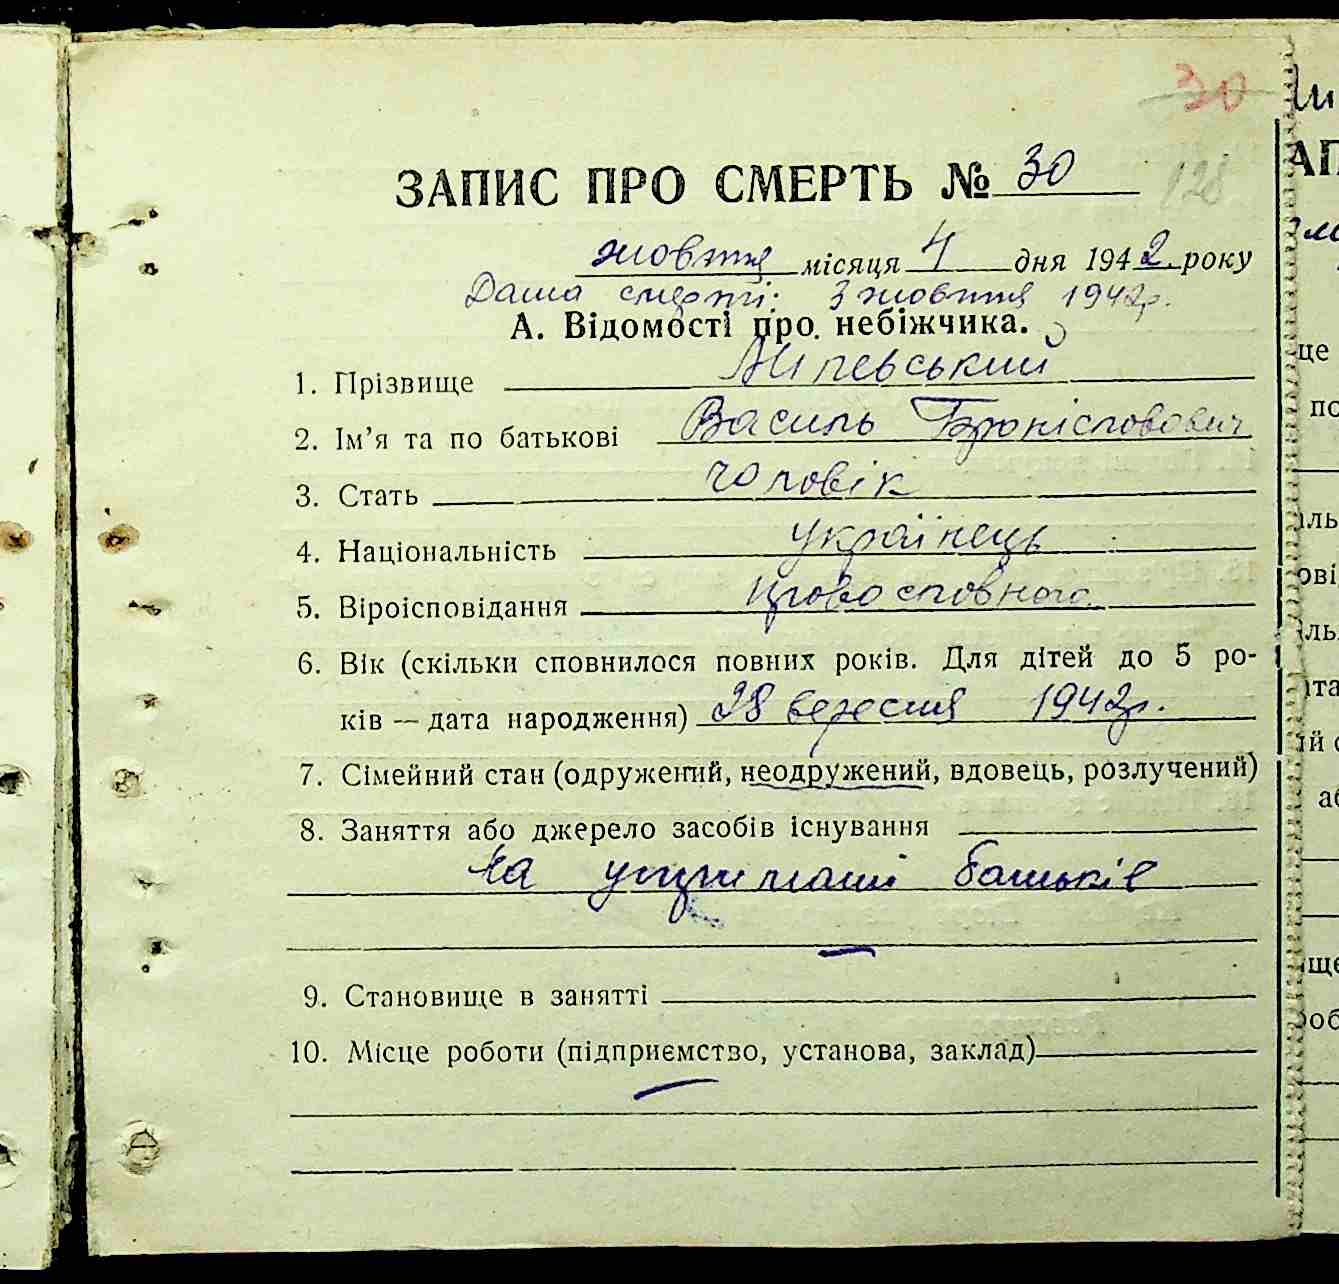 30
ЗАПИС ПРО СМЕРТЬ № 30
128
жовтня місяця 4 дня 1942 року
Дата смерті: 3 жовтня 1942р.
А. Відомості про небіжчика.
1. Прізвище
2. Ім’я та по батькові Василь Броніславович
3. Стать чоловік
4. Національність українець
5. Віроісповідання православного
6. Вік (скільки сповнилося повних років. Для дітей до 5 ро-
ків — дата народження) 28 вересня 1942р.
7. Сімейний стан (одружений, неодружений, вдовець, розлучений)
8. Заняття або джерело засобів існування
на утриманні батьків
—
9. Становище в занятті
10. Місце роботи (підприємство, установа, заклад)
—